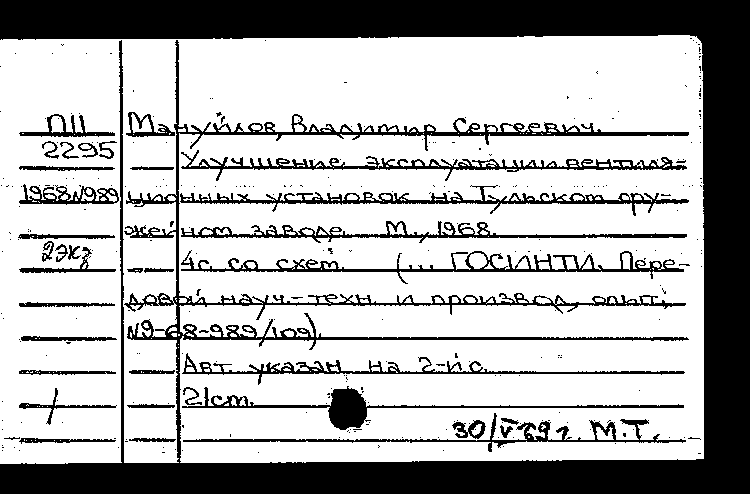 П11 Мануйлов, Владимир Сергеевич.
2295 Улучшение эксплуатации вентиля-
1968№989 ционных установок на Тульском ору-
жейном заводе. М., 1968.
2экз 4с. со схем. (... ГОСИНТИ. Пере-
довой науч.-техн. и производ. опыт;
№9-68-989/109).
Авт. указан на 2-й с.
21см.
30/V 69 г. М.Т.